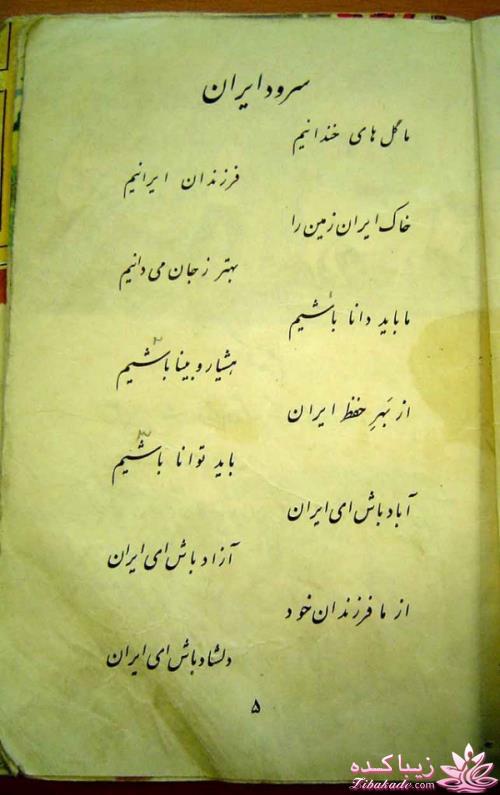 سرود ایران
ما گل های خندانیم
فرزندان ایرانیم
خاک ایران زمین را
بهتر ز جان می دانیم
ما باید دانا باشیم
۱
هشیار و بینا باشیم
۲
از بَهرِ حفظ ایران
باید توانا باشیم
۳
آباد باش ای ایران
آزاد باش ای ایران
از ما فرزندان خود
دلشاد باش ای ایران
۵
زیباکده
Zibakade.com